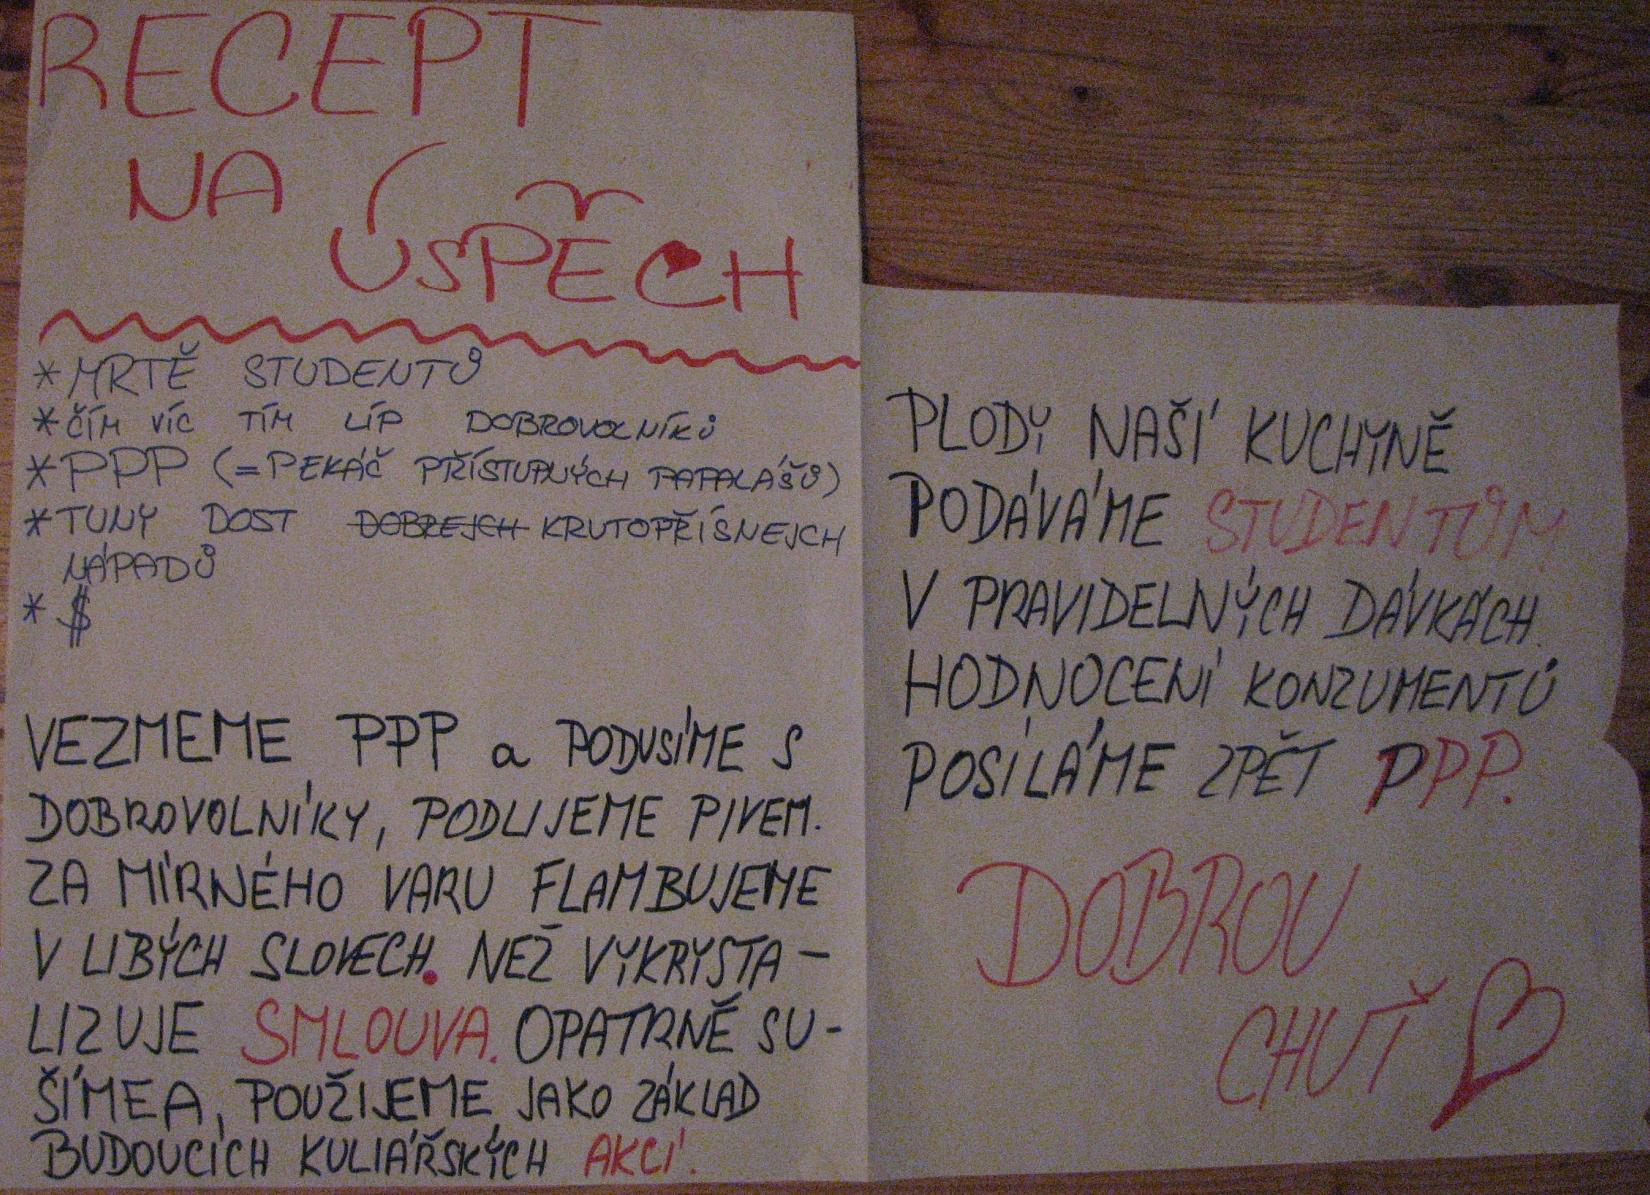 RECEPT
NA
ÚSPĚCH
* MRTĚ STUDENTŮ
* ČÍM VÍC TÍM LÍP DOBROVOLNÍKŮ
* PPP (=PEKÁČ PŘÍSTUPNÝCH PAPALÁŠŮ)
* TUNY DOST DOBREJCH KRUTOPŘÍSNEJCH
NÁPADŮ
* $
VEZMEME PPP a PODUSÍME S
DOBROVOLNÍKY, PODLIJEME PIVEM.
ZA MÍRNÉHO VARU FLAMBUJEME
V LIBÝCH SLOVECH. NEŽ VYKRYSTA-
LIZUJE SMLOUVA. OPATRNĚ SU-
ŠÍME A, POUŽIJEME JAKO ZÁKLAD
BUDOUCÍCH KULIÁŘSKÝCH AKCÍ.
PLODY NAŠÍ KUCHYNĚ
PODÁVÁME STUDENTŮM
V PRAVIDELNÝCH DÁVKÁCH.
HODNOCENÍ KONZUMENTŮ
POSÍLÁME ZPĚT PPP.
DOBROU
CHUŤ